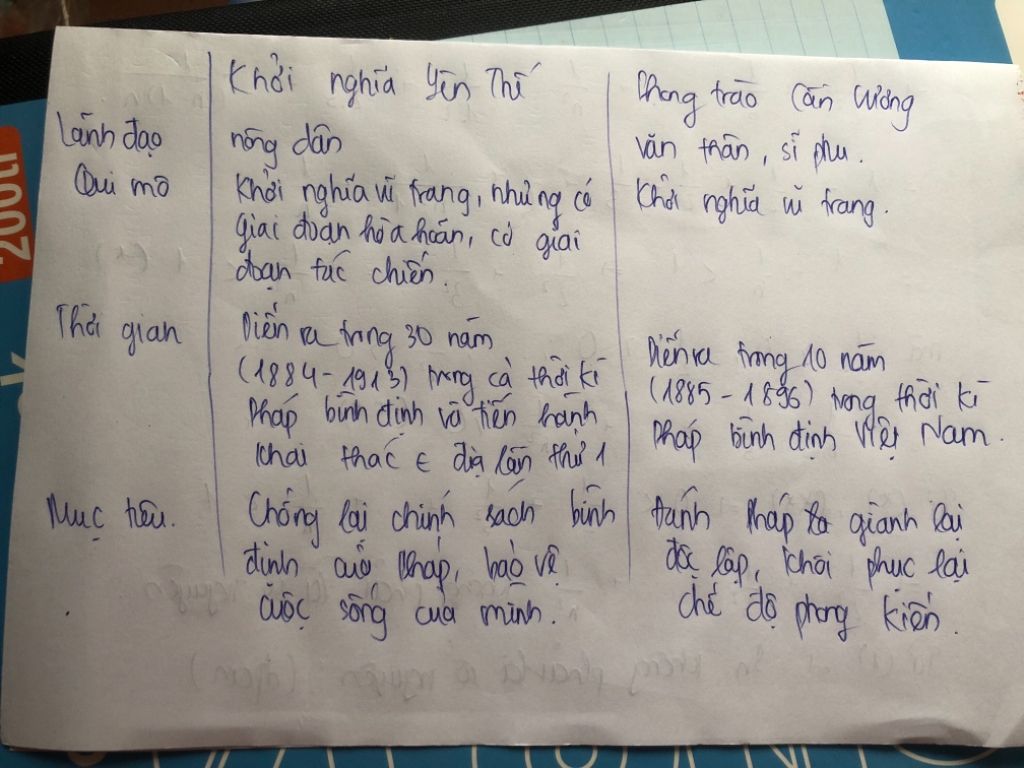 Khởi nghĩa Yên Thế
Phong trào Cần Vương
Lãnh đạo
nông dân
văn thân, sĩ phu.
Qui mô
Khởi nghĩa vũ trang, nhưng có
giai đoạn hòa hoãn, có giai
đoạn tác chiến.
Khởi nghĩa vũ trang.
Thời gian
Diễn ra trong 30 năm
(1884-1913) trong cả thời kì
Pháp bình định và tiến hành
khai thác € địa lần thứ 1
Diễn ra trong 10 năm
(1885-1896) trong thời kì
Pháp bình định Việt Nam.
Mục tiêu.
Chống lại chính sách bình
định của Pháp, bảo vệ
cuộc sống của mình.
đánh Pháp giành lại
độc lập, khôi phục lại
chế độ phong kiến.
200LI